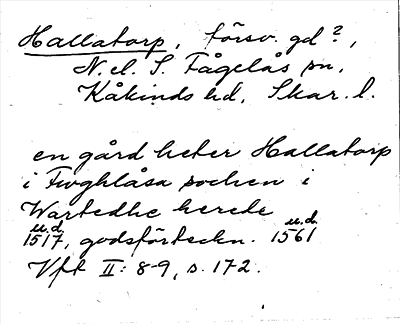 Hallatorp, försv. gd?,
N. el. S. Fågelås sn,
Kåkinds hd, Skar. l.
en gård heter Hallatorp
i Fwghlåsa sochen i
Wartedhe herede
u.d. u.d.
1517, godsförteckn. 1561
Vft II: 8-9, s. 172.